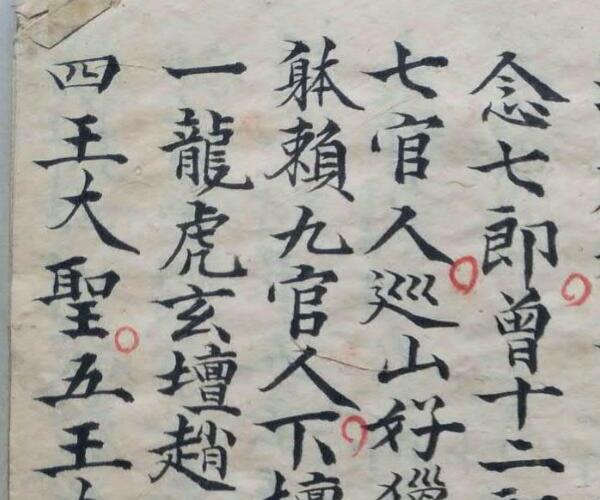 念七郎曾十二
七官人巡山好獵
躰賴九官人下壇
一龍虎玄壇趙
四王大聖五王